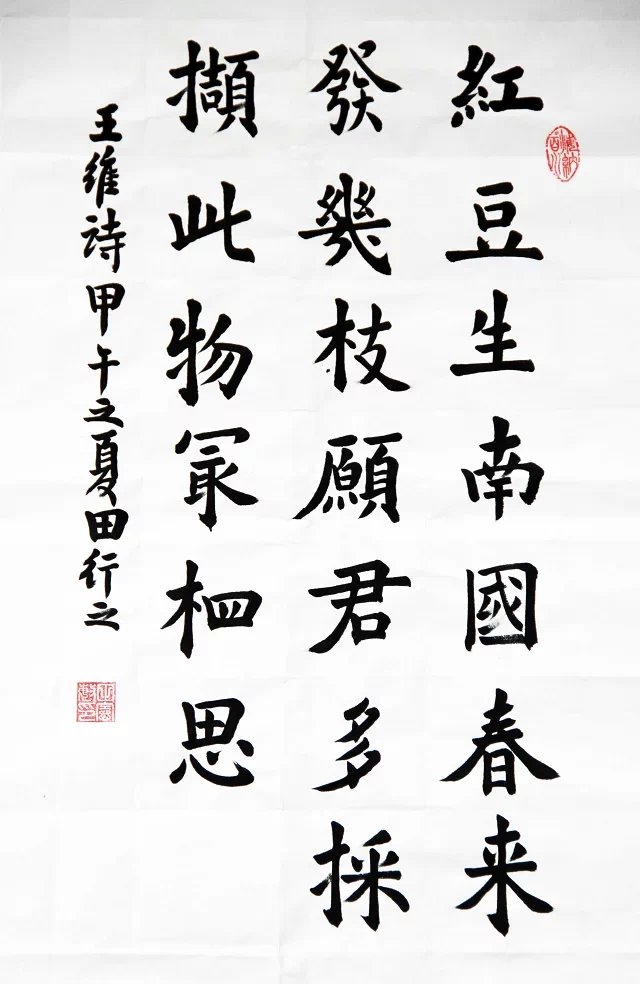 紅豆生南國春来
發幾枝願君多採
擷此物冣相思
王維詩甲午之夏田行之